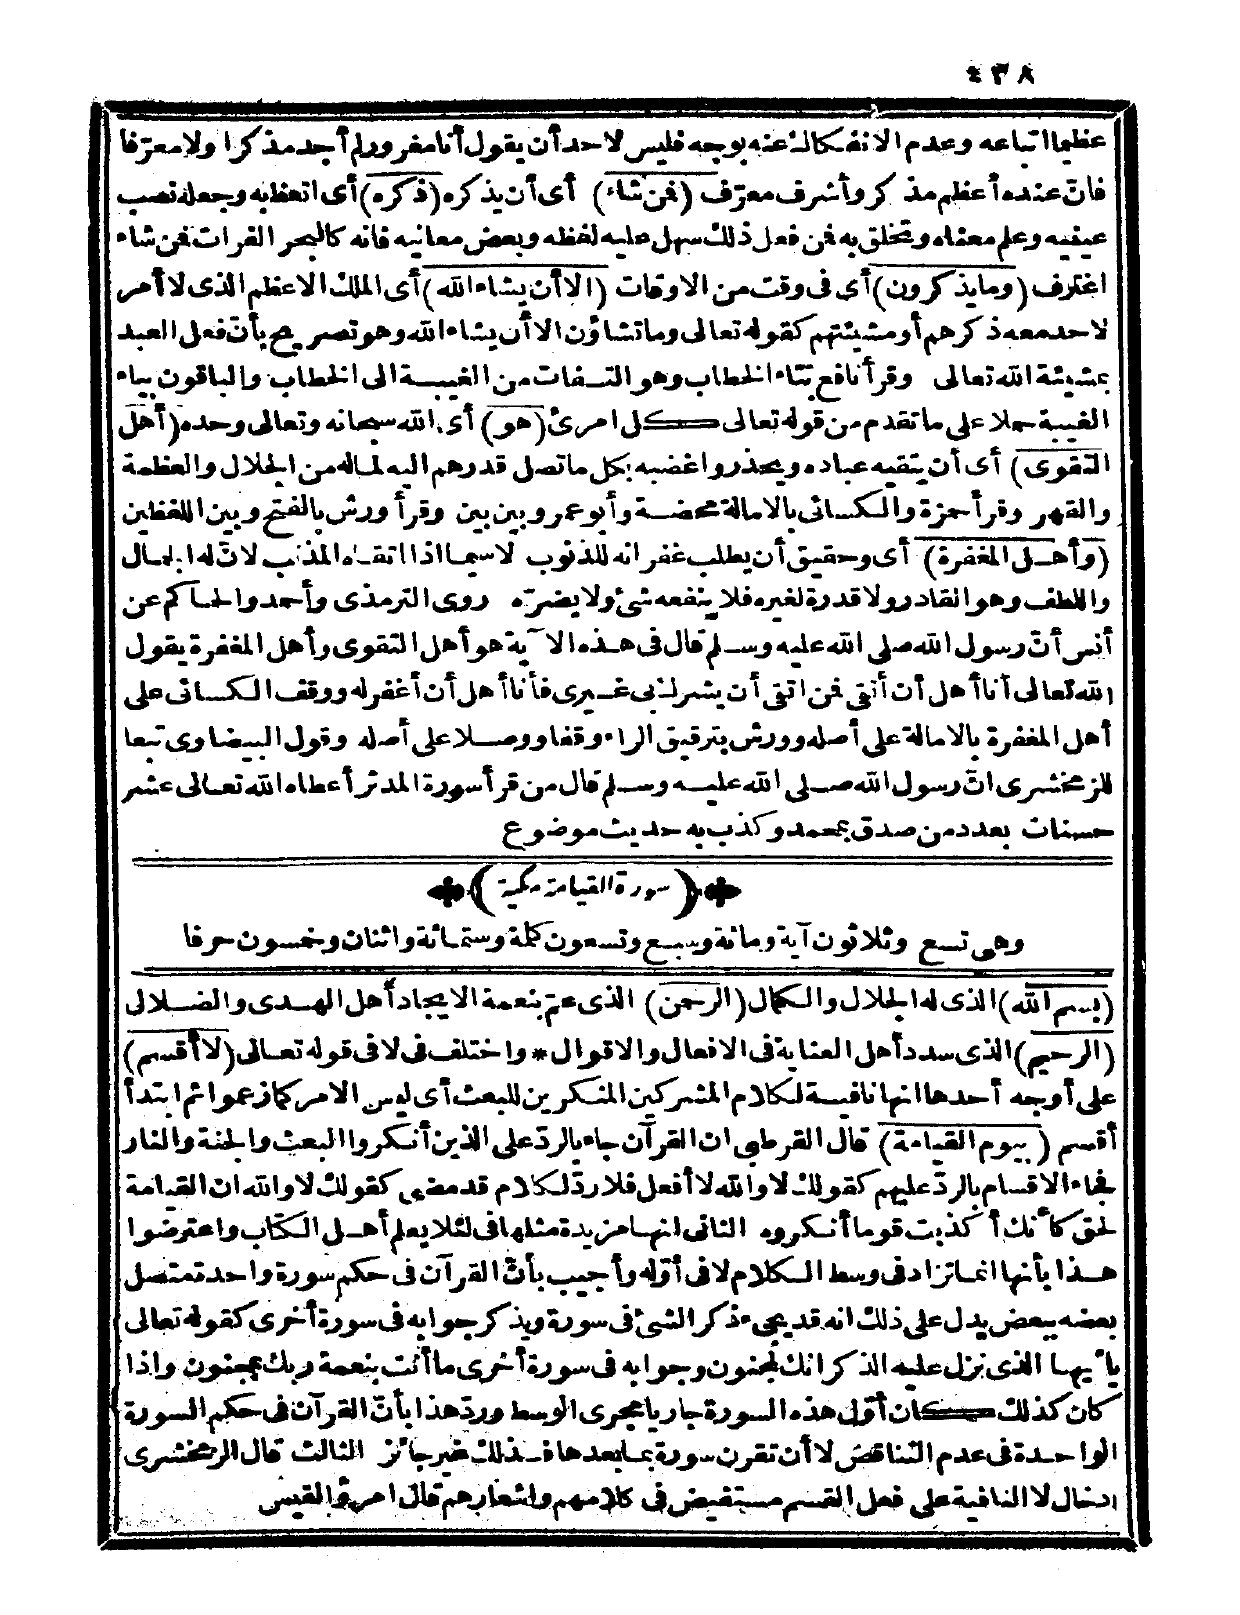 ٤٣٨
عظيما اتباعه وعدم الانفكاك عنه بوجه فليس لاحد أن يقول أنا مغرور لم أجد مذكرا ولا معرّفا
فانّ عنده أعظم مذكر وأشرف معرّف (فمن شاء) أى أن يذكره (ذكره) أى اتعظ به وجعله نصب
عينيه وعلم معناه وتخلق به فمن فعل ذلك سهل عليه لفظه وبعض معانيه فانه كالبحر الفرات فمن شاء
اغترف (وما يذكرون) أى فى وقت من الاوقات (الا أن يشاء الله) أى الملك الاعظم الذى لا أمر
لاحد معه ذكرهم أو مشيئتهم كقوله تعالى وما تشاؤن الا أن يشاء الله وهو تصريح بأنّ فعل العبد
بمشيئة الله تعالى وقرأ نافع بتاء الخطاب وهو التفات من الغيبة الى الخطاب والباقون بياء
الغيبة حملا على ما تقدم من قوله تعالى كل امرئ (هو) أى الله سبحانه وتعالى وحده (أهل
التقوى) أى أن يتقيه عباده ويحذروا غضبه بكل ما تصل قدرهم اليه لماله من الجلال والعظمة
والقهر وقرأ حمزة والكسائى بالامالة محضة وأبو عمرو بين بين وقرأ ورش بالفتح وبين اللفظين
(وأهل المغفرة) أى وحقيق أن يطلب غفرانه للذنوب لاسيما اذا اتقاه المذنب لانّ له الجمال
واللطف وهو القادر ولا قدرة لغيره فلا ينفعه شئ ولا يضرّه روى الترمذى وأحمد والحاكم عن
أنس أنّ رسول الله صلى الله عليه وسلم قال فى هذه الآية هو أهل التقوى وأهل المغفرة يقول
الله تعالى أنا أهل أن أتقى فمن اتقى أن يشرك بى غيرى فأنا أهل أن أغفر له ووقف الكسائى على
أهل المغفرة بالامالة على أصله وورش بترقيق الراء وقفا ووصلا على أصله وقول البيضاوى تبعا
للزمخشرى انّ رسول الله صلى الله عليه وسلم قال من قرأ سورة المدثر أعطاه الله تعالى عشر
حسنات بعدد من صدق بمحمد وكذب به حديث موضوع
(سورة القيامة مكية)
وهى تسع وثلاثون آية ومائة وسبع وتسعون كلمة وستمائة واثنان وخمسون حرفا
(بسم الله) الذى له الجلال والكمال (الرحمن) الذى عمّ بنعمة الايجاد أهل الهدى والضلال
(الرحيم) الذى سدد أهل العناية فى الافعال والاقوال * واختلف فى لا فى قوله تعالى (لا أقسم)
على أوجه أحدها انها نافية لكلام المشركين المنكرين للبعث أى ليس الامر كما زعموا ثم ابتدأ
أقسم (بيوم القيامة) قال القرطبى ان القرآن جاء بالردّ على الذين أنكروا البعث والجنة والنار
فجاء الاقسام بالردّ عليهم كقولك لا والله لا أفعل فلا ردّ لكلام قد مضى كقولك لا والله ان القيامة
لحق كأنك أكذبت قوما أنكروه الثانى انها مزيدة مثلها فى لئلا يعلم أهل الكتاب واعترضوا
هذا بأنها انما تزاد فى وسط الكلام لا فى أوّله وأجيب بأنّ القرآن فى حكم سورة واحدة متصل
بعضه ببعض يدل على ذلك انه قد يجىء ذكر الشئ فى سورة ويذكر جوابه فى سورة أخرى كقوله تعالى
يأيها الذى نزل عليه الذكر انك لمجنون وجوابه فى سورة أخرى ما أنت بنعمة ربك بمجنون واذا
كان كذلك كان أوّل هذه السورة جاريا مجرى الوسط وردّ هذا بأنّ القرآن فى حكم السورة
الواحدة فى عدم التناقض لا أن تقرن سورة بما بعدها فذلك غير جائز الثالث قال الزمخشرى
ادخال لا النافية على فعل القسم مستفيض فى كلامهم وأشعارهم قال امرؤ القيس